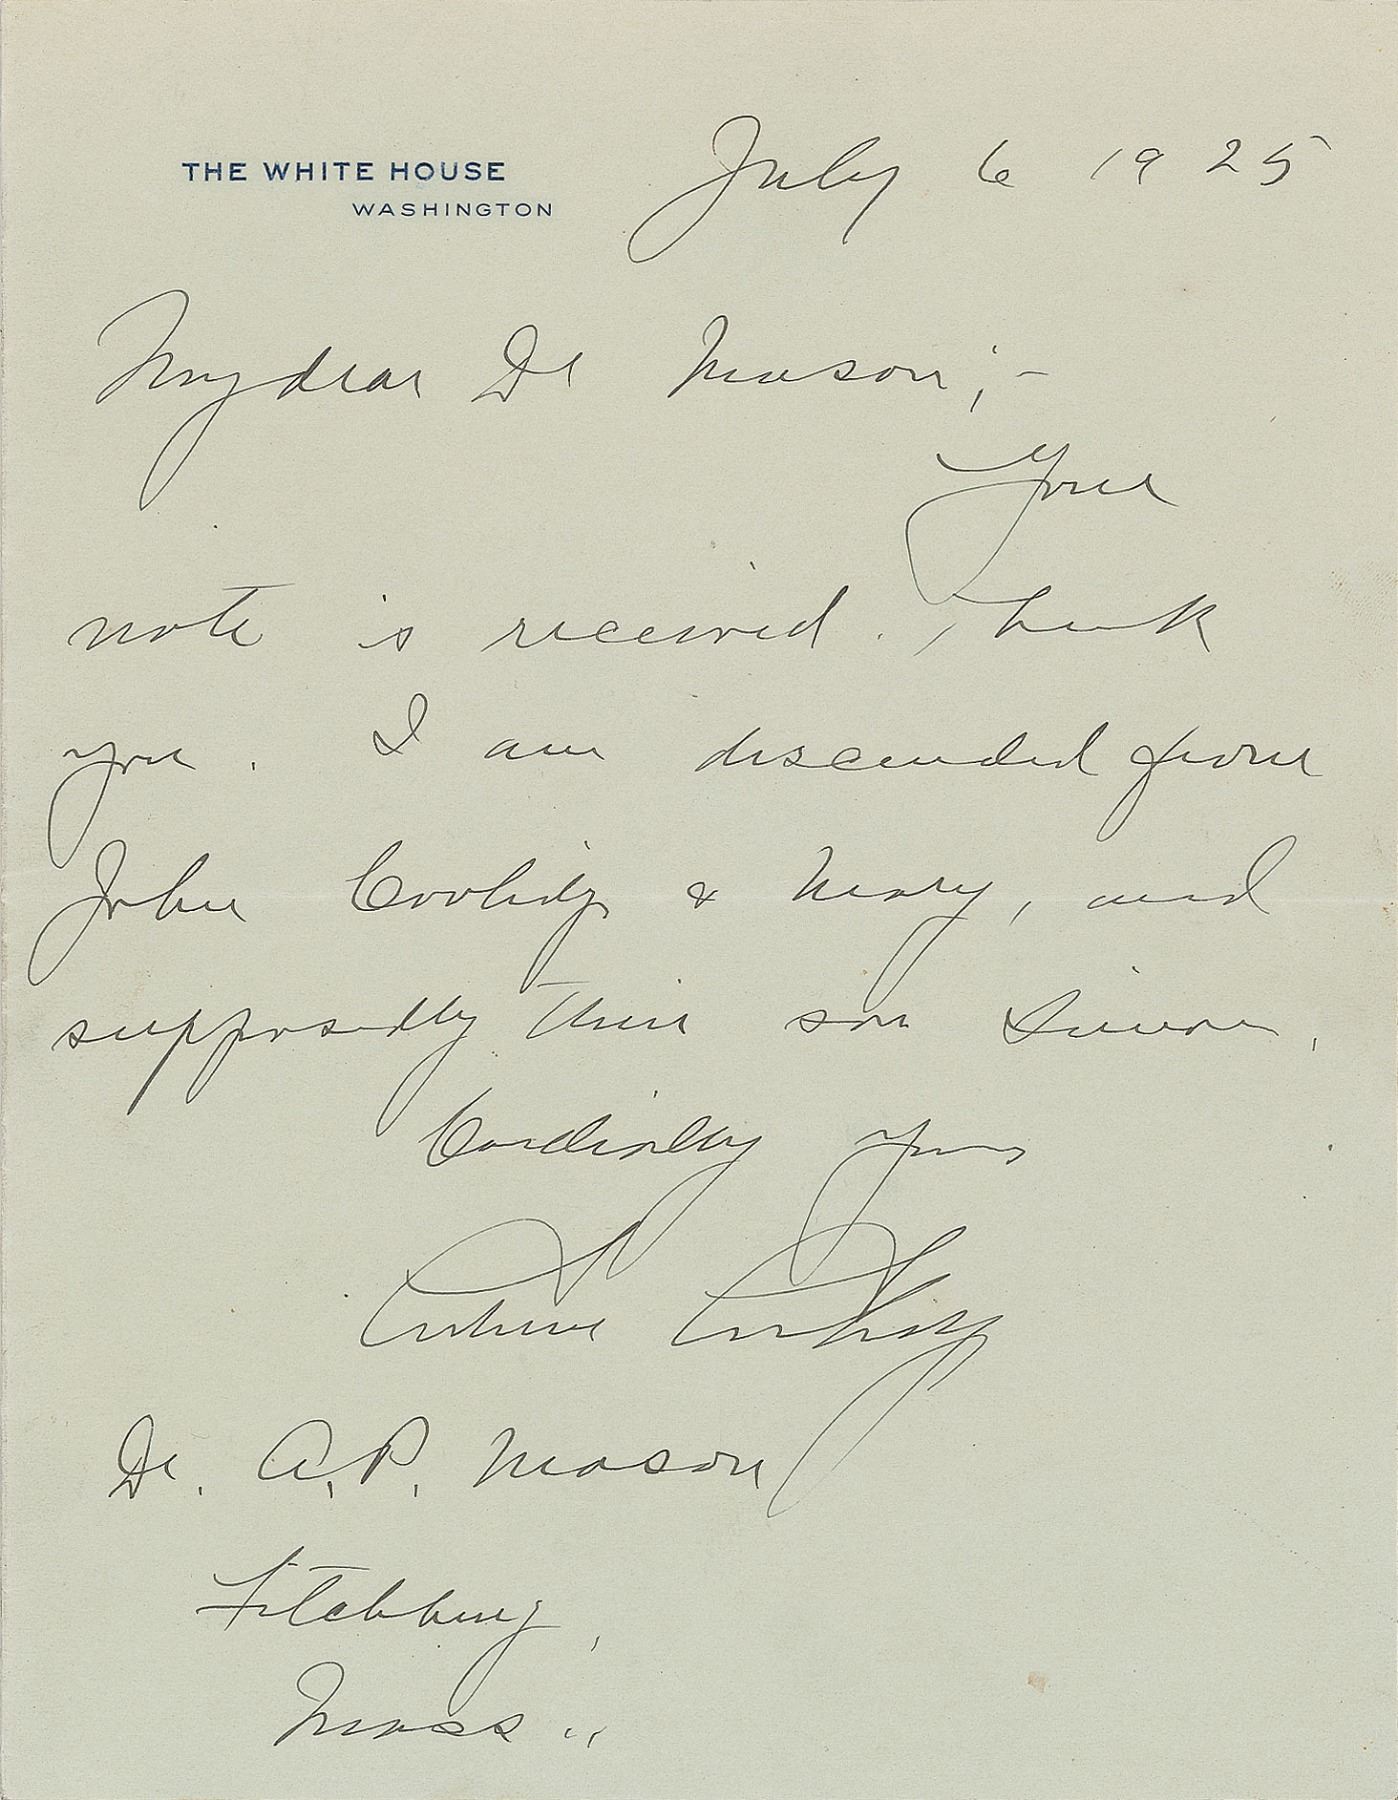 THE WHITE HOUSE
WASHINGTON
July 6 1925
My dear Dr Mason;-
Your
note is received. Thank
you. I am descended from
John Coolidge & Mary, and
supposedly their son Simon.
Cordially yours
Calvin Coolidge
Dr. A.P. Mason
Fitchburg,
Mass..